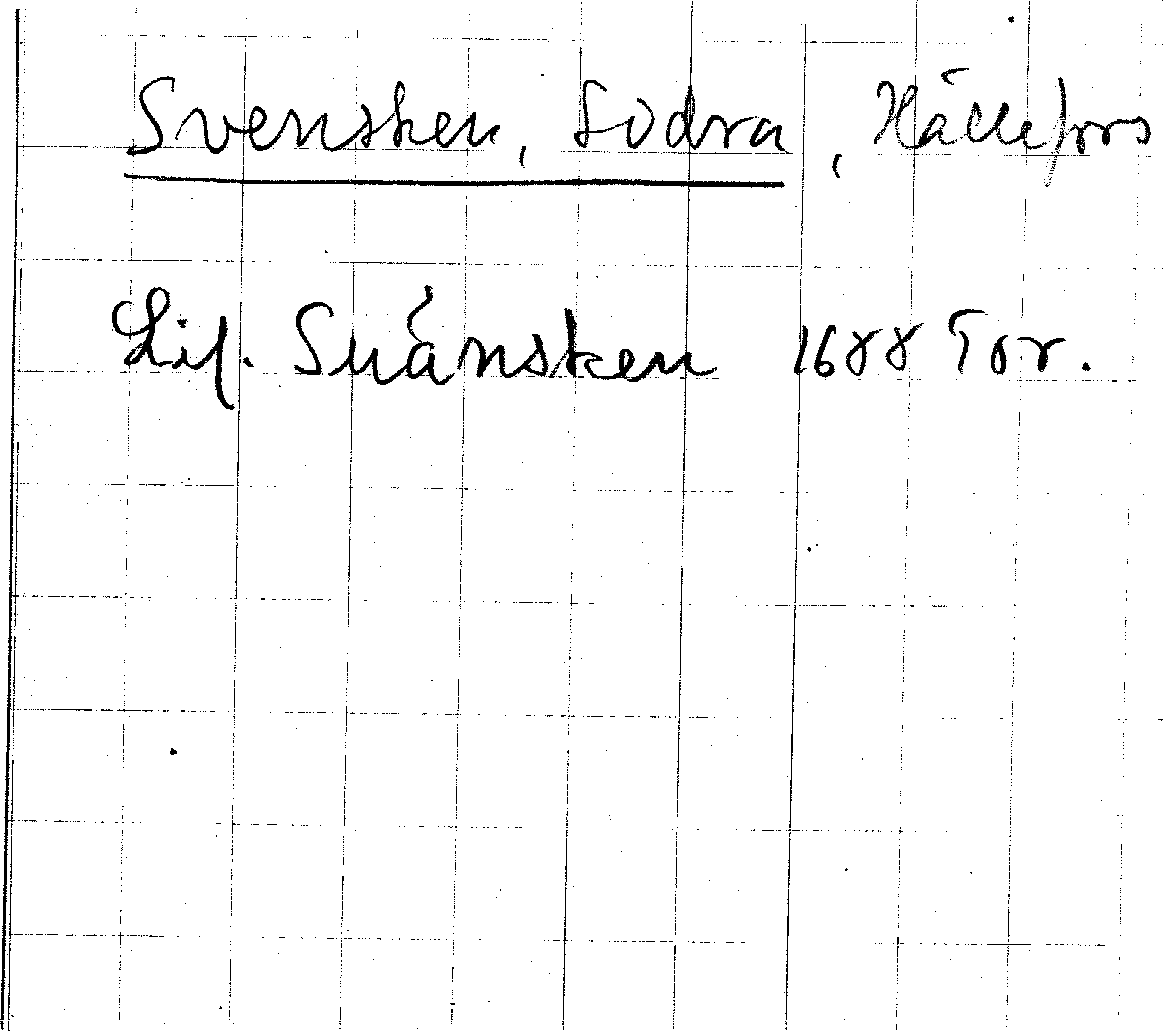 Svensken, Södra, Hällefors
Lif. Suånsken 1688 Tor.